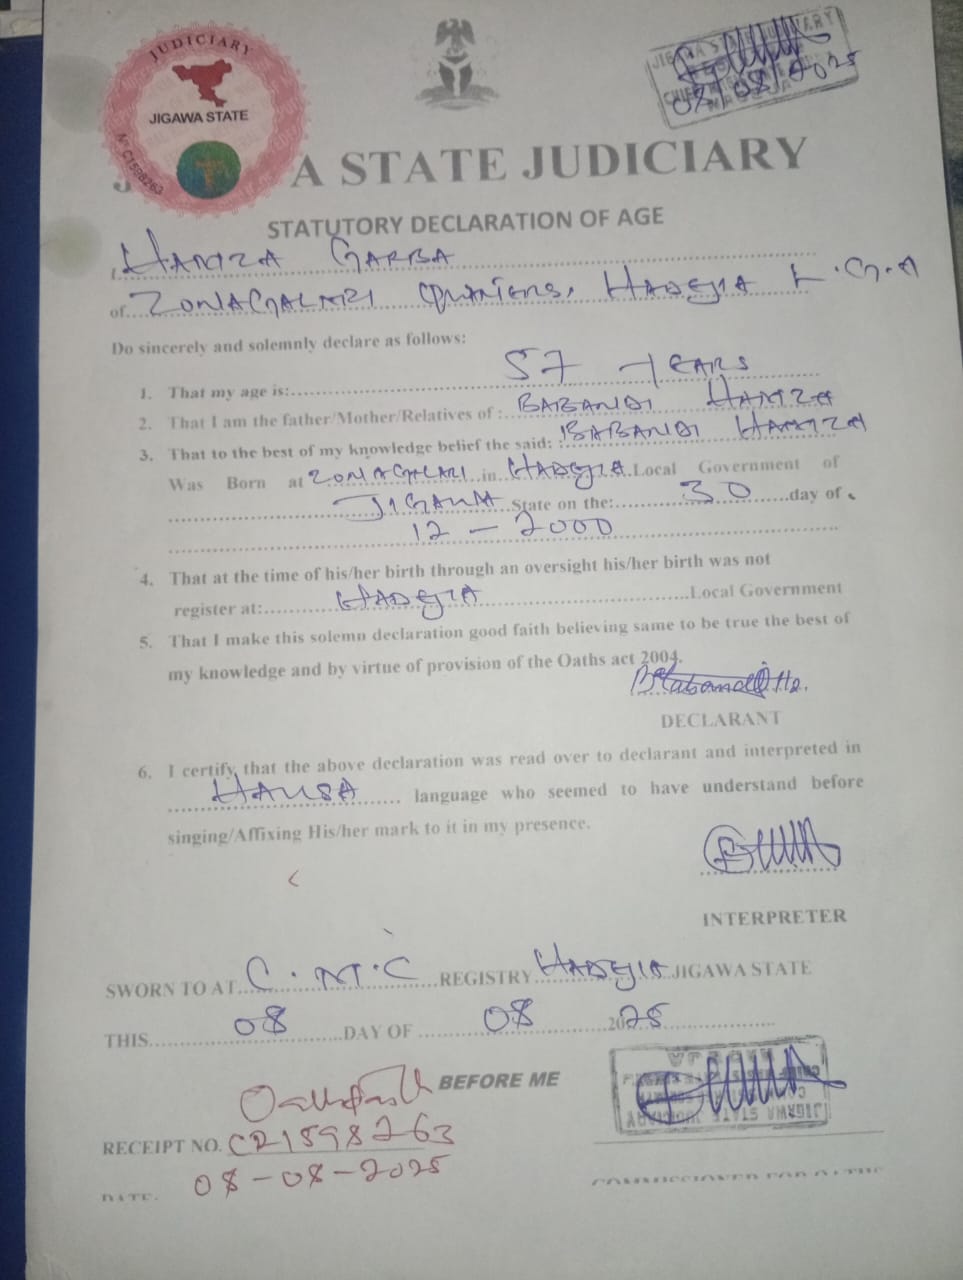 JUDICIARY
JIGAWA STATE
Nº C1598263
JIGAWA STATE JUDICIARY
CHIEF
08/08/2025
A STATE JUDICIARY
STATUTORY DECLARATION OF AGE
I, HAMZA GARBA
of ZONAGALARI QUARTERS, HADEJIA L.G.A
Do sincerely and solemnly declare as follows:
1. That my age is: 57 YEARS
2. That I am the father/Mother/Relatives of : BABANDI HAMZA
3. That to the best of my knowledge belief the said: BABANDI HAMZA
Was Born at ZONAGALARI in HADEJIA Local Government of
JIGAWA State on the: 30 day of
12 - 2000
4. That at the time of his/her birth through an oversight his/her birth was not
register at: HADEJIA Local Government
5. That I make this solemn declaration good faith believing same to be true the best of
my knowledge and by virtue of provision of the Oaths act 2004.
DECLARANT
6. I certify, that the above declaration was read over to declarant and interpreted in
HAUSA language who seemed to have understand before
singing/Affixing His/her mark to it in my presence.
INTERPRETER
SWORN TO AT C.M.C REGISTRY HADEJIA JIGAWA STATE
THIS 08 DAY OF 08 2025
BEFORE ME
JIGAWA STATE JUDICIARY
RECEIPT NO. C21598263
DATE. 08-08-2025
COMMISSIONER FOR OATHS